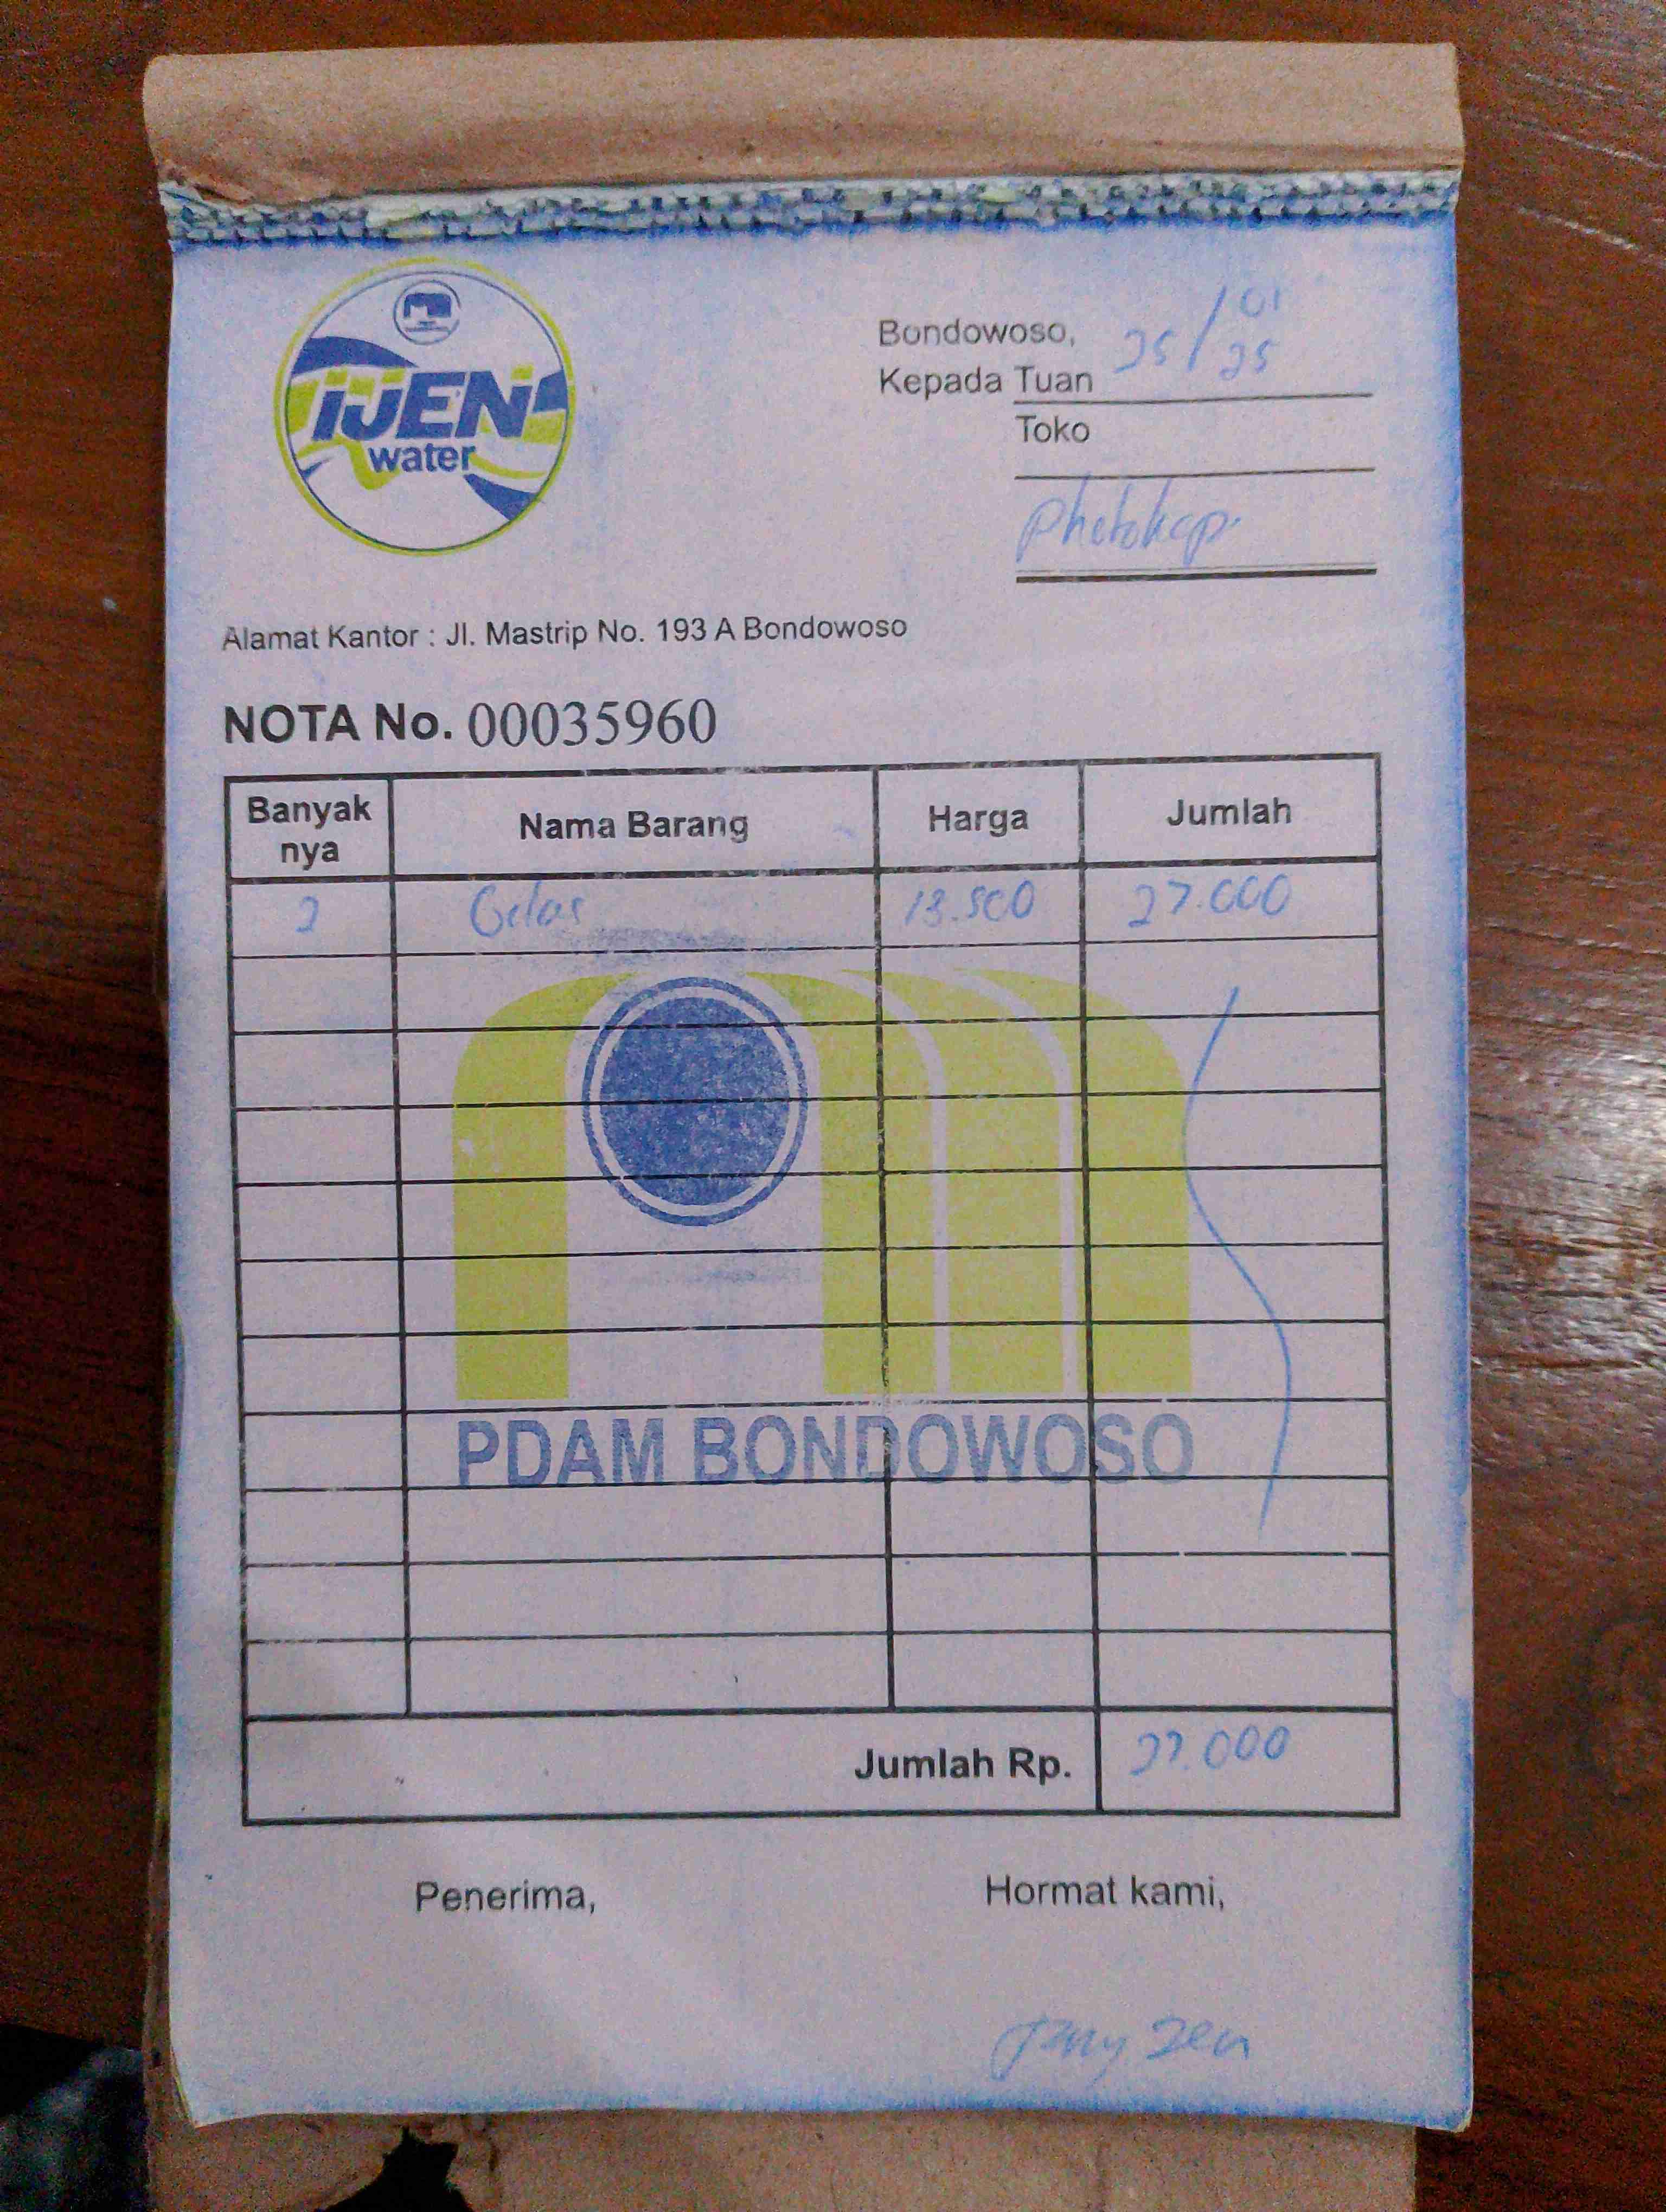 iJEN
water
Bondowoso, 25/01 25
Kepada Tuan
Toko
Photokopi
Alamat Kantor : Jl. Mastrip No. 193 A Bondowoso
NOTA No. 00035960
Banyak nya Nama Barang Harga Jumlah
2 Gelas 13.500 27.000
PDAM BONDOWOSO
Jumlah Rp. 27.000
Penerima, Hormat kami,